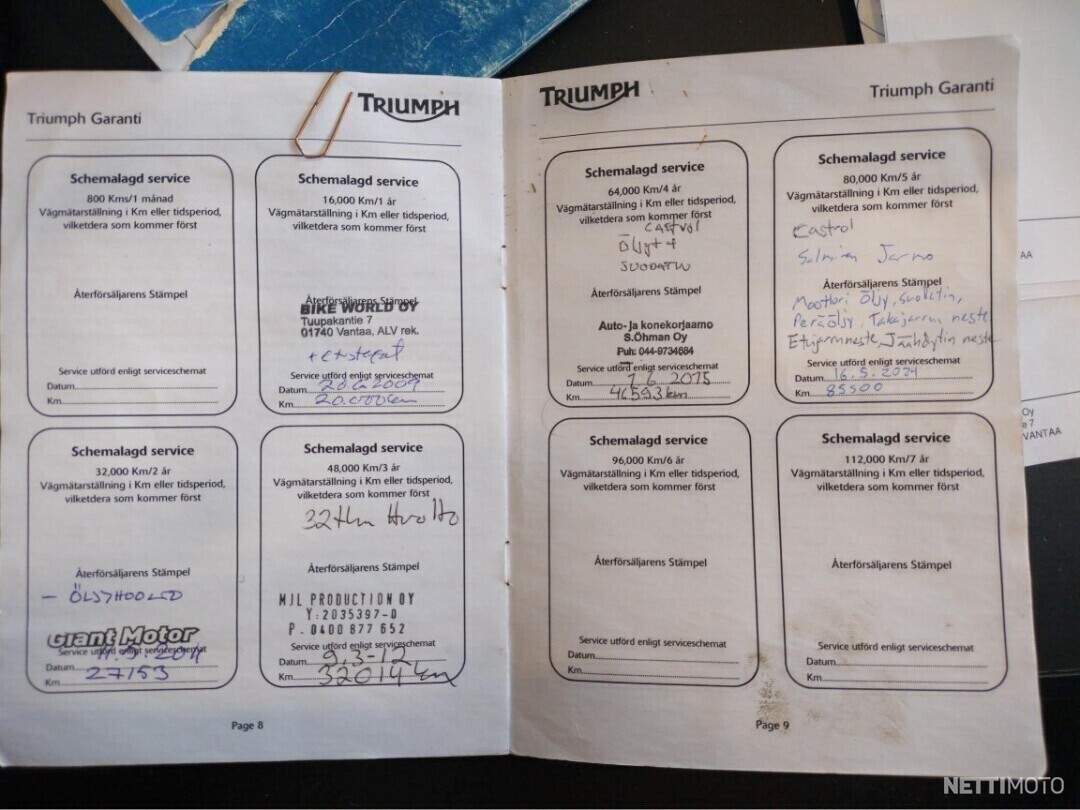 Triumph Garanti
TRIUMPH
Schemalagd service
800 Kms/1 månad
Vägmätarställning i Km eller tidsperiod,
vilketdera som kommer först
Återförsäljarens Stämpel
Service utförd enligt serviceschemat
Datum
Km
Schemalagd service
16,000 Km/1 år
Vägmätarställning i Km eller tidsperiod,
vilketdera som kommer först
Återförsäljarens Stämpel
BIKE WORLD OY
Tuupakantie 7
01740 Vantaa, ALV rek.
Service utförd enligt serviceschemat
Datum 20.6.2009
Km 20.000km
Schemalagd service
32,000 Km/2 år
Vägmätarställning i Km eller tidsperiod,
vilketdera som kommer först
Återförsäljarens Stämpel
- ÖLJYHUOLTO
Giant Motor
Service utförd enligt serviceschemat
Datum 11.5.2011
Km 27153
Schemalagd service
48,000 Km/3 år
Vägmätarställning i Km eller tidsperiod,
vilketdera som kommer först
32tkm Huolto
Återförsäljarens Stämpel
MJL PRODUCTION OY
Y:2035397-0
P. 0400 877 652
Service utförd enligt serviceschemat
Datum 9.3-12
Km 32014km
Page 8
TRIUMPH
Triumph Garanti
Schemalagd service
64,000 Km/4 år
Vägmätarställning i Km eller tidsperiod,
vilketdera som kommer först
CASTROL
Öljyt +
SUODATIN
Återförsäljarens Stämpel
Auto- ja konekorjaamo
S.Öhman Oy
Puh: 044-9734684
Service utförd enligt serviceschemat
Datum 1.6.2015
Km 46593km
Schemalagd service
80,000 Km/5 år
Vägmätarställning i Km eller tidsperiod,
vilketdera som kommer först
Castrol
Salminen Jarmo
Återförsäljarens Stämpel
Moottori Öljy, suodatin,
Peräöljy, Takajarru neste
Etujarruneste, Jäähdytin neste
Service utförd enligt serviceschemat
Datum 16.5.2024
Km 85500
Schemalagd service
96,000 Km/6 år
Vägmätarställning i Km eller tidsperiod,
vilketdera som kommer först
Återförsäljarens Stämpel
Service utförd enligt serviceschemat
Datum
Km
Schemalagd service
112,000 Km/7 år
Vägmätarställning i Km eller tidsperiod,
vilketdera som kommer först
Återförsäljarens Stämpel
Service utförd enligt serviceschemat
Datum
Km
Page 9
AA
Oy
e 7
VANTAA
NETTIMOTO